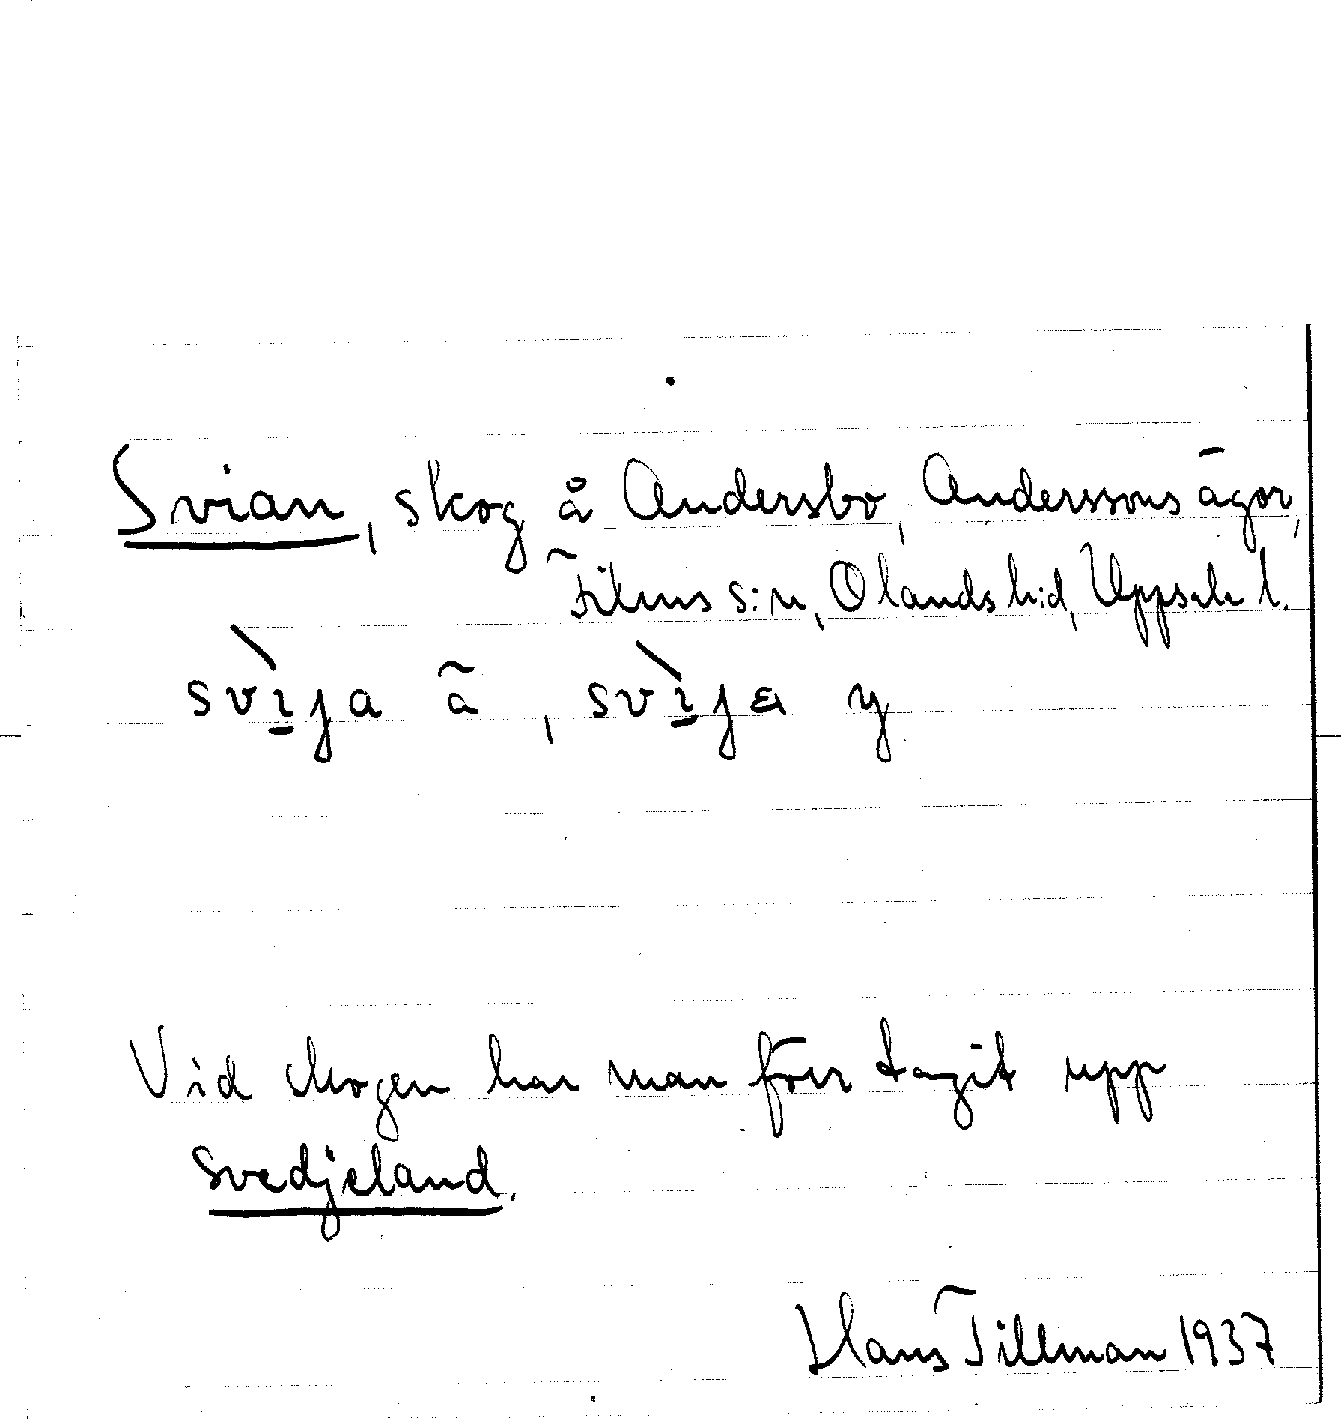 Svian, skog å Andersbo, Anderssons ägor,
Films s:n, Olands hd, Uppsala l.
svìja ä, svìja y
Vid skogen har man förr tagit upp
svedjeland.
Hans Tillman 1937